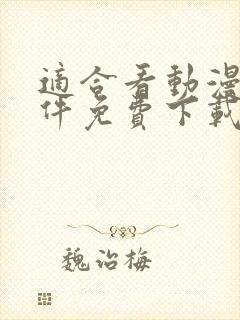 適合看動漫
件免費下載
魏治梅